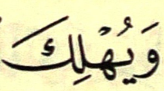 وَيُهْلِكَ